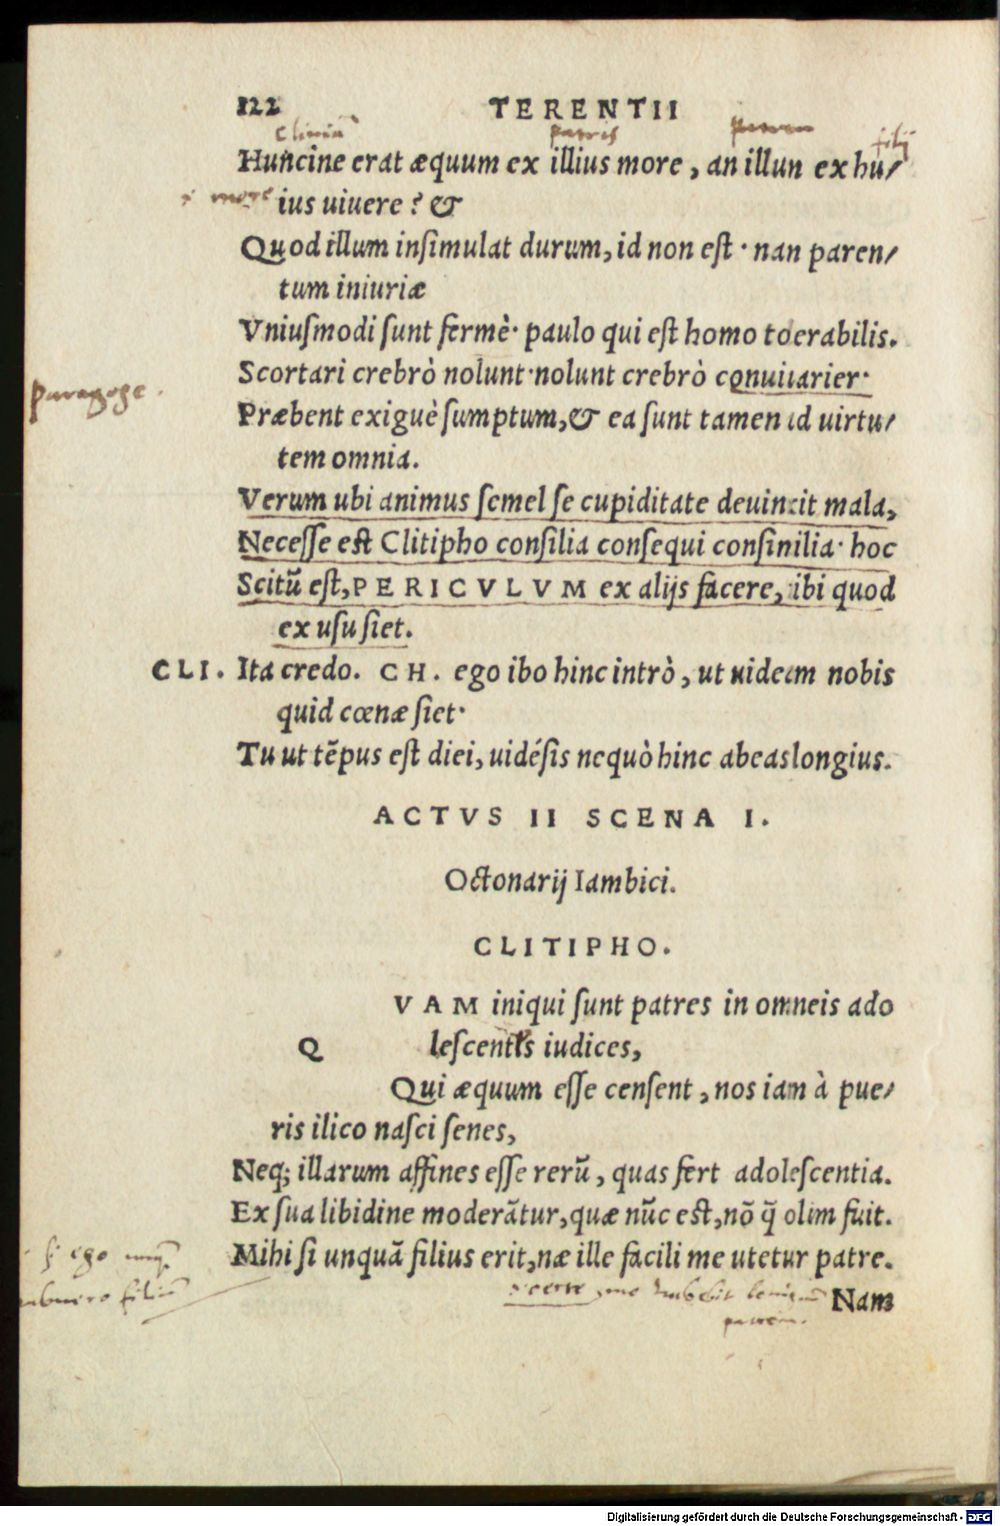 122 TERENTII
Cliniã patris patrem filij
Huncine erat æquum ex illius more, an illun ex hu/
i more ius uiuere? &
Quod illum insimulat durum, id non est· nan paren/
tum iniuriæ
Vniusmodi sunt fermè· paulo qui est homo toerabilis.
Scortari crebrò nolunt·nolunt crebrò conuiuarier·
paragoge.
Præbent exiguè sumptum,& ea sunt tamen id uirtu/
tem omnia.
Verum ubi animus semel se cupiditate deuincit mala,
Necesse est Clitipho consilia consequi consinilia· hoc
Scitũ est, PERICVLVM ex alijs facere, ibi quod
ex usu siet.
CLI. Ita credo. CH. ego ibo hinc intrò, ut uideam nobis
quid cœnæ siet·
Tu ut tẽpus est diei, uidésis nequò hinc abeas longius.
ACTVS II SCENA I.
Octonarij Iambici.
CLITIPHO.
VAM iniqui sunt patres in omneis ado
Q lescentes iudices,
Qui æquum esse censent, nos iam à pue/
ris ilico nasci senes,
Neq; illarum affines esse rerũ, quas fert adolescentia.
Ex sua libidine moderãtur, quæ nũc est, nõ q̃ olim fuit.
Mihi si unquã filius erit, næ ille facili me utetur patre.
si ego unq̃
habuero filiũ
certe me habebit
patrem.
Nam
Digitalisierung gefördert durch die Deutsche Forschungsgemeinschaft - DFG